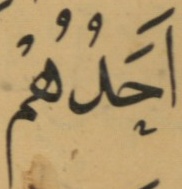 اَحَدُهُمْ